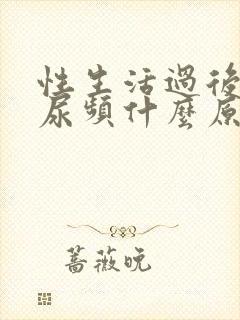 性生活過後
尿頻什麼原
薔薇晚